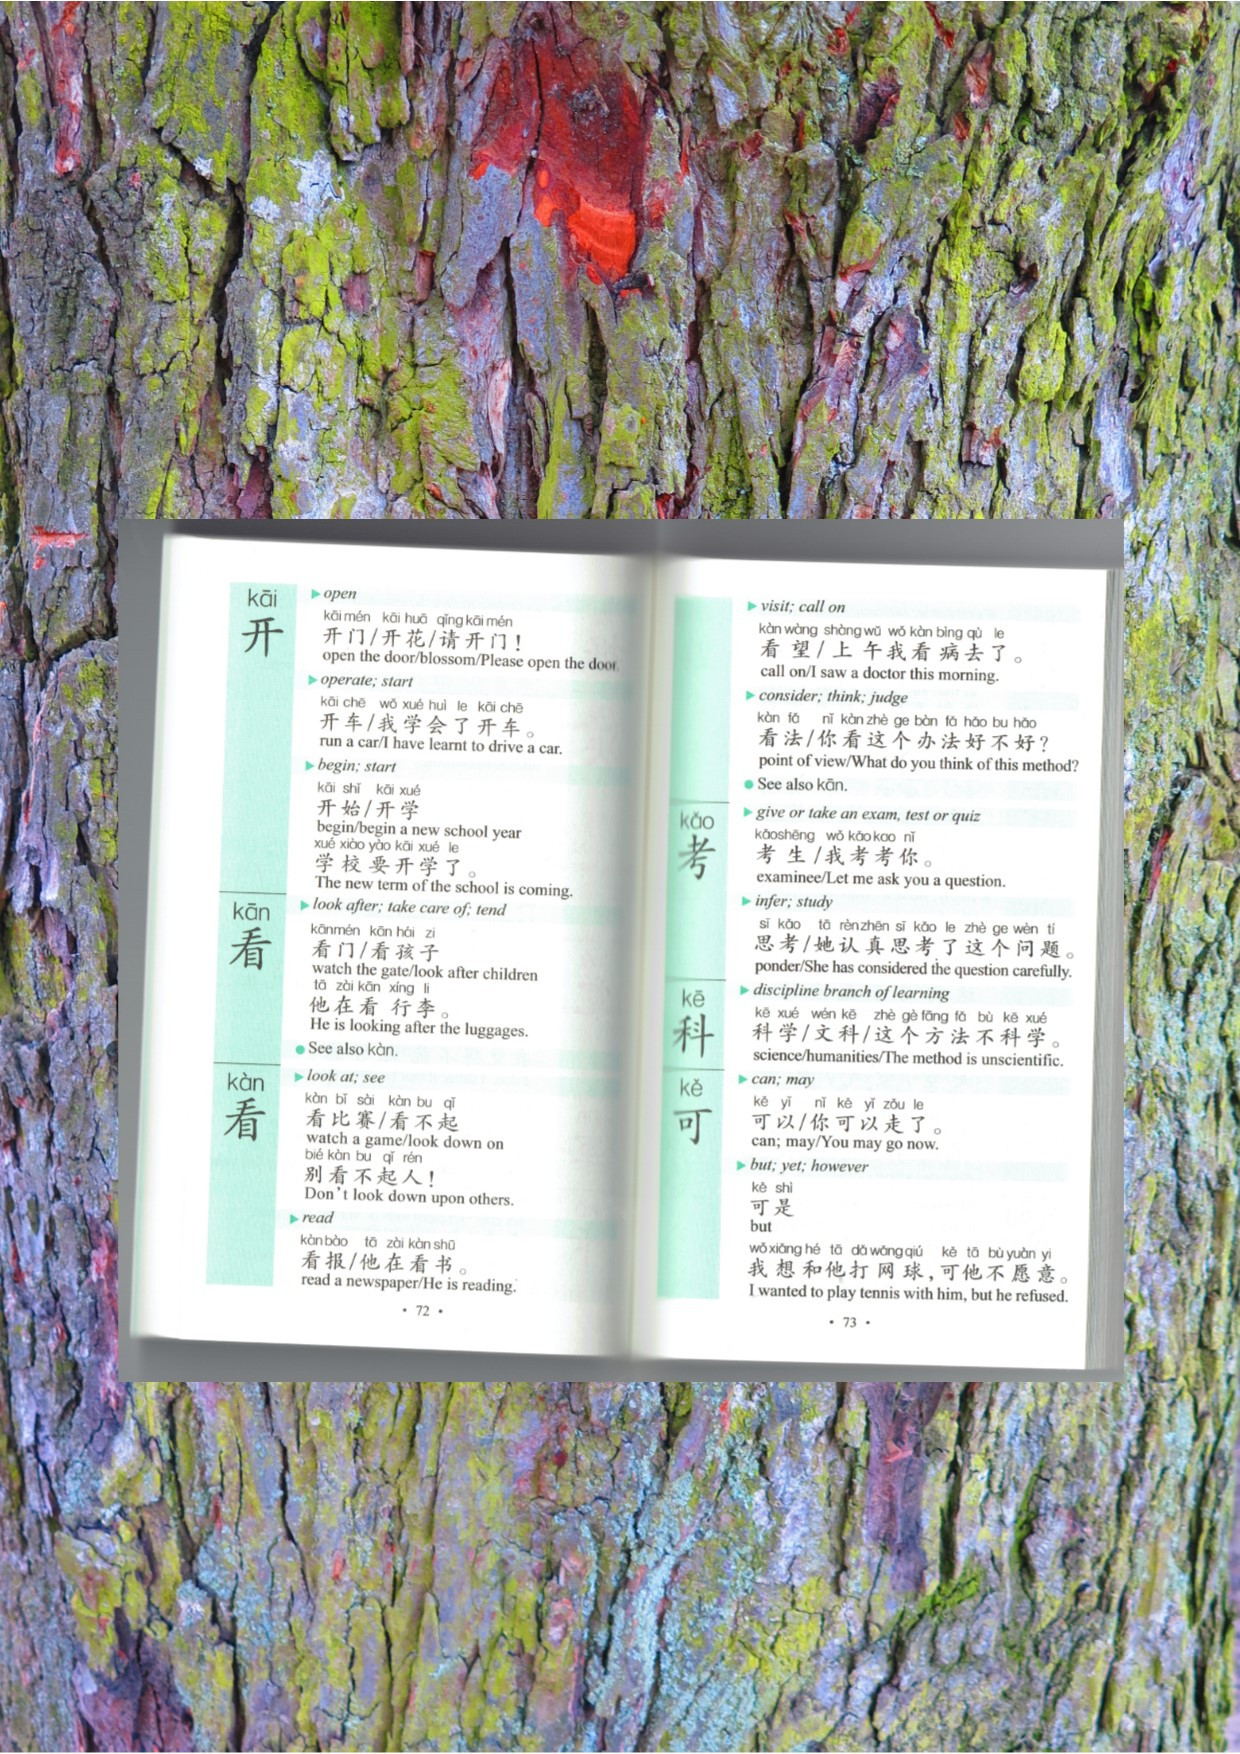 kāi
开
open
kāi mén kāi huā qǐng kāi mén
开门/开花/请开门!
open the door/blossom/Please open the door.
operate; start
kāi chē wǒ xué huì le kāi chē
开车/我学会了开车。
run a car/I have learnt to drive a car.
begin; start
kāi shǐ kāi xué
开始/开学
begin/begin a new school year
xué xiào yào kāi xué le
学校要开学了。
The new term of the school is coming.
kān
看
look after; take care of; tend
kānmén kān hái zi
看门/看孩子
watch the gate/look after children
tā zài kān xíng li
他在看行李。
He is looking after the luggages.
See also kàn.
kàn
看
look at; see
kàn bǐ sài kàn bu qǐ
看比赛/看不起
watch a game/look down on
bié kàn bu qǐ rén
别看不起人!
Don't look down upon others.
read
kàn bào tā zài kàn shū
看报/他在看书。
read a newspaper/He is reading.
• 72 •
visit; call on
kàn wàng shàng wǔ wǒ kàn bìng qù le
看望/上午我看病去了。
call on/I saw a doctor this morning.
consider; think; judge
kàn fǎ nǐ kàn zhè ge bàn fǎ hǎo bu hǎo
看法/你看这个办法好不好?
point of view/What do you think of this method?
See also kān.
kǎo
考
give or take an exam, test or quiz
kǎoshēng wǒ kǎo kao nǐ
考生/我考考你。
examinee/Let me ask you a question.
infer; study
sī kǎo tā rènzhēn sī kǎo le zhè ge wèn tí
思考/她认真思考了这个问题。
ponder/She has considered the question carefully.
kē
科
discipline branch of learning
kē xué wén kē zhè gè fāng fǎ bù kē xué
科学/文科/这个方法不科学。
science/humanities/The method is unscientific.
kě
可
can; may
kě yǐ nǐ kě yǐ zǒu le
可以/你可以走了。
can; may/You may go now.
but; yet; however
kě shì
可是
but
wǒ xiǎng hé tā dǎ wǎng qiú kě tā bù yuàn yi
我想和他打网球,可他不愿意。
I wanted to play tennis with him, but he refused.
• 73 •